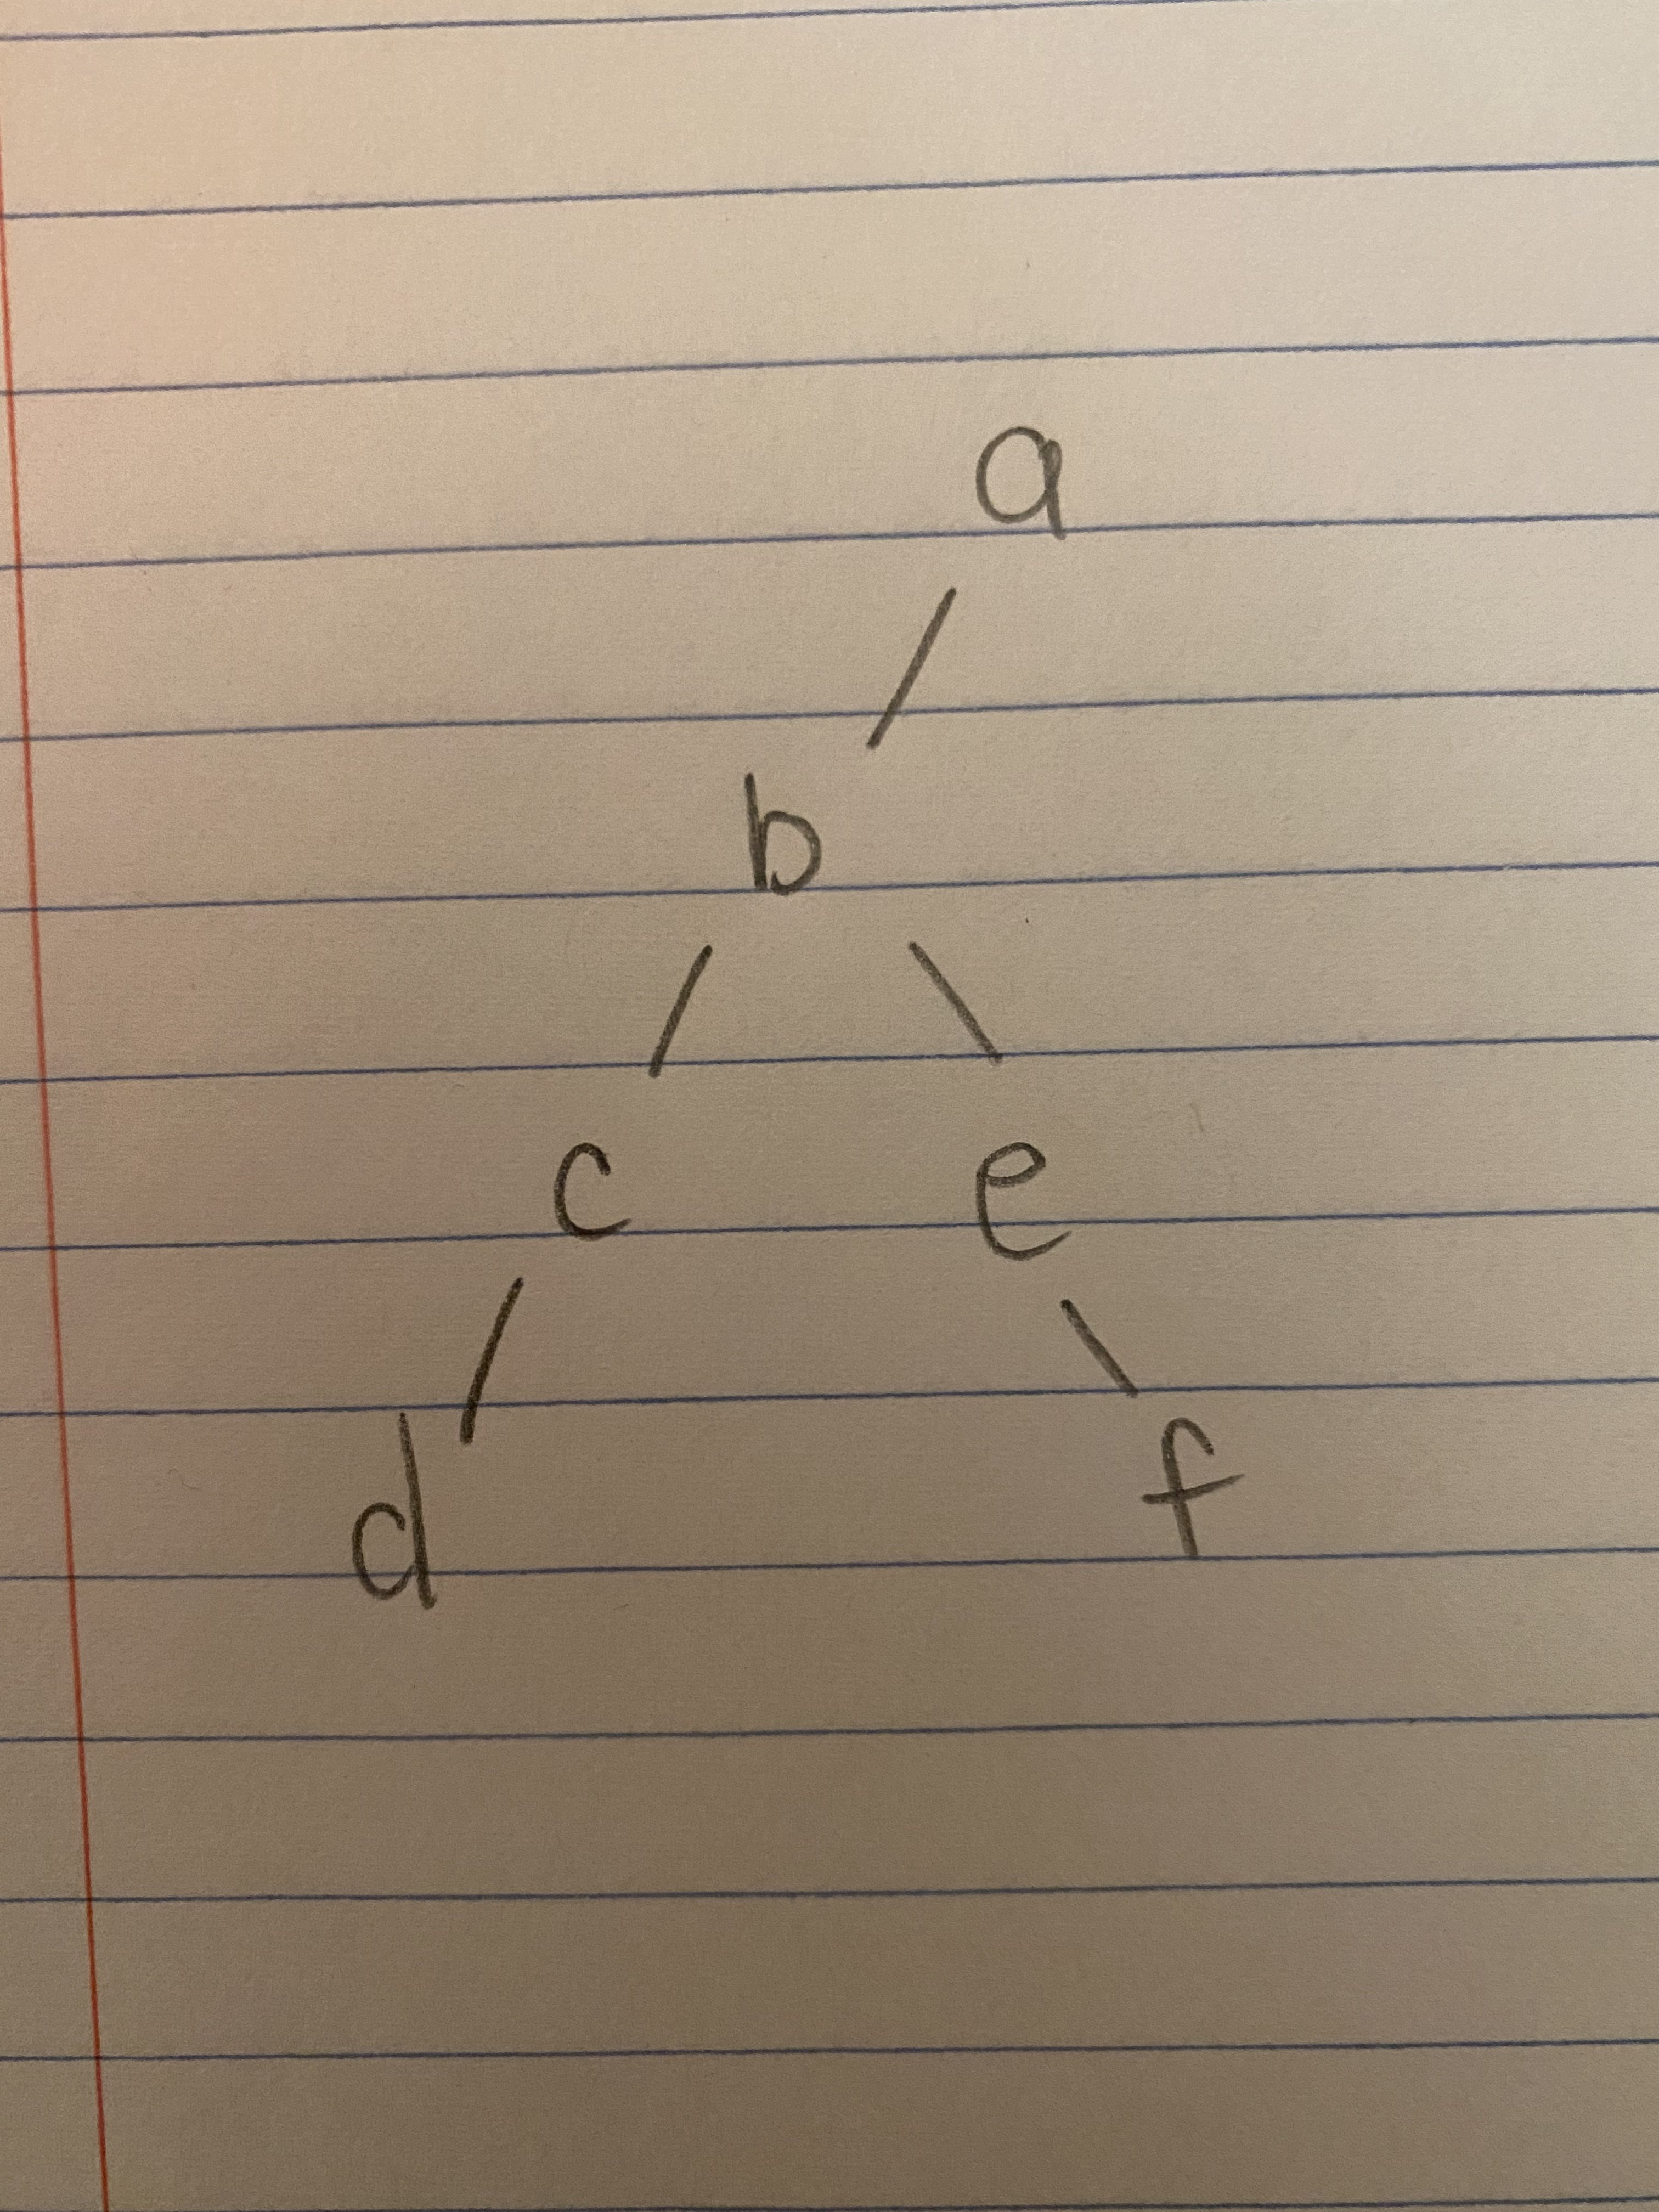 a
b
c e
d f